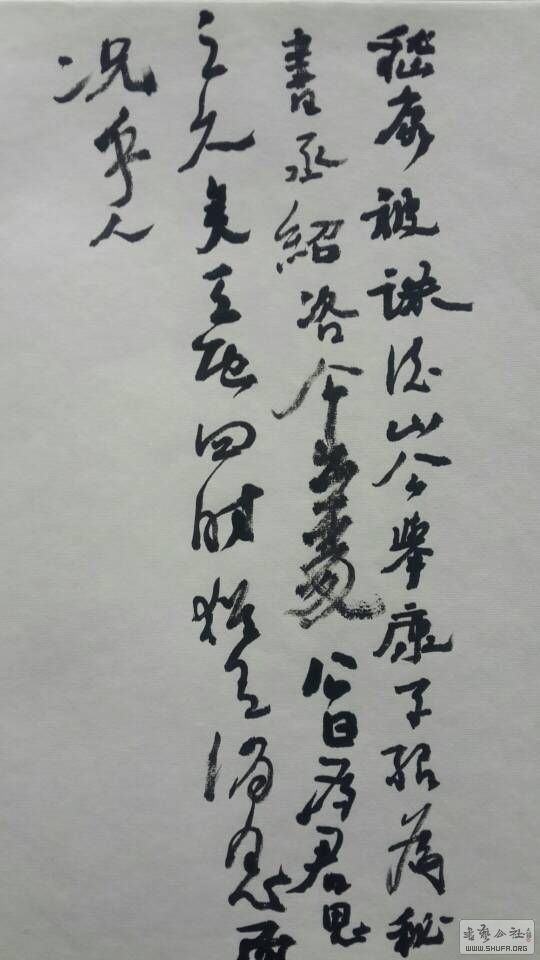 嵇康被诛后山公举康子绍为秘
書丞紹咨公出處公曰为君思
之久矣天地四时猶有消息而
况乎人
書藝公社
WWW.SHUFA.ORG